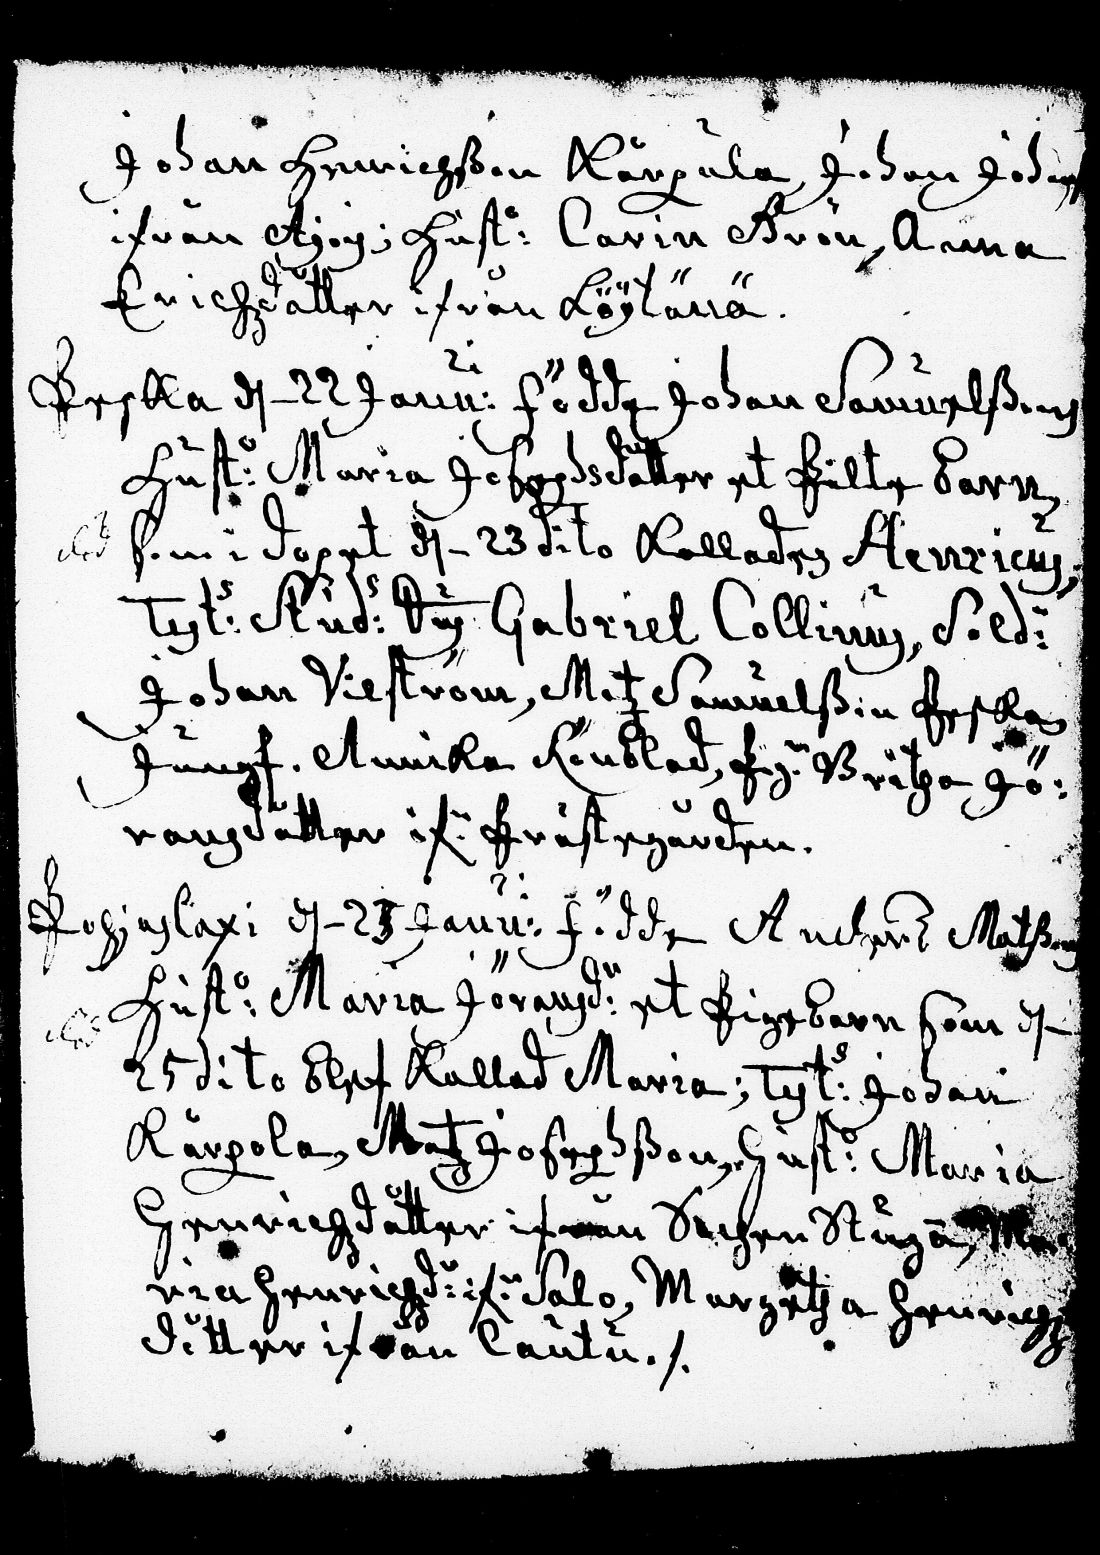 Johan Henrichsson Kärpula, Johan Johans
ifrån Ajoij; Hust: Carin Brôn, Anna
Erichzdåtter ifrån Löytänä.
Peska d– 22 Janu: födde Johan Samuelssons
Hust: Maria Josephsdåtter et Pilte barn,
som i dopet d– 23 dito Kallades Henricus,
Tijt: Stud: Dns Gabriel Collinus, Sold:
Johan Vieström, Matz Samuelsson Peska,
Jungf. Annika Rönblad, Pg: Britha Jö:
ransdåtter if: Prästegården.
Pohjaslaxi d– 23 Janu: födde Anders Matssons
Hust: Maria Joransd: et Pigebarn som d–
25 dito blef Kallad Maria; Tijt: Johan
Kärpola, Matz Josephsson, Hust: Maria
Henrichzdåtter ifrån Ma-
ria Henrichzd: if: Salo, Margetha Henrichz
dåtter ifrån Cautu./.